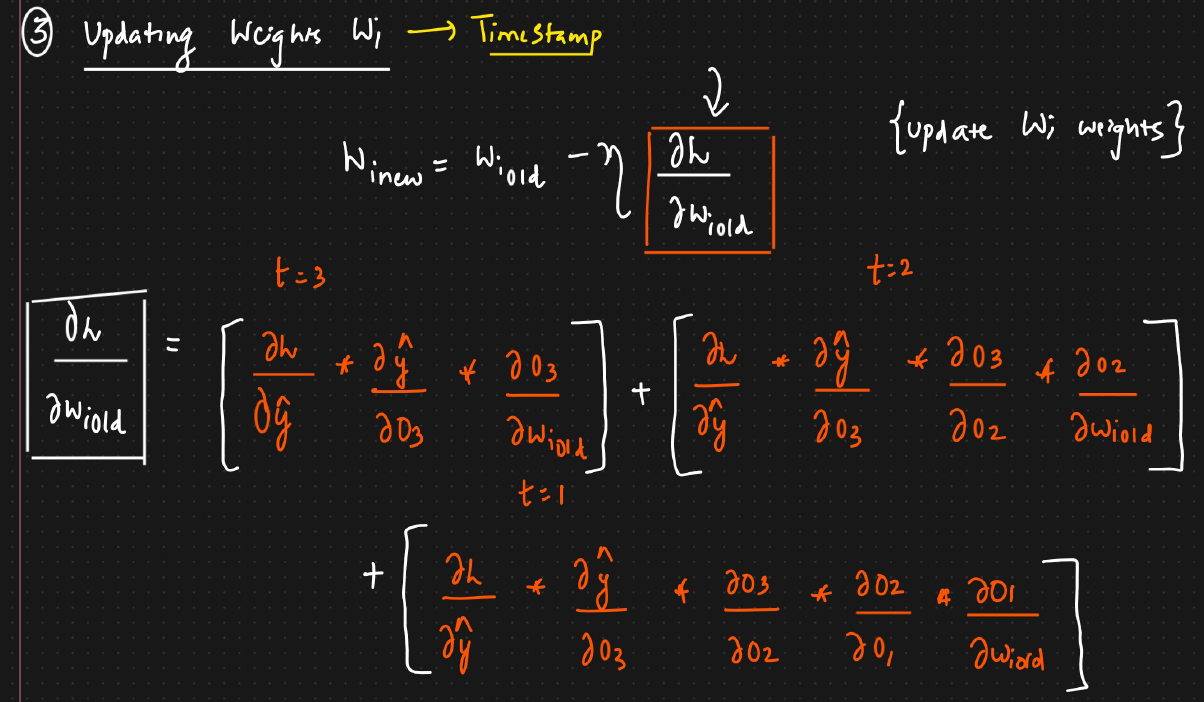 ③ Updating Weights Wi → Timestamp
Winew = Wiold − η ∂L/∂Wiold {update Wi weights}
t=3 t=2
∂L/∂Wiold = [∂L/∂ŷ * ∂ŷ/∂O3 * ∂O3/∂Wiold] + [∂L/∂ŷ * ∂ŷ/∂O3 * ∂O3/∂O2 * ∂O2/∂Wiold]
t=1
+ [∂L/∂ŷ * ∂ŷ/∂O3 * ∂O3/∂O2 * ∂O2/∂O1 * ∂O1/∂Wiold]